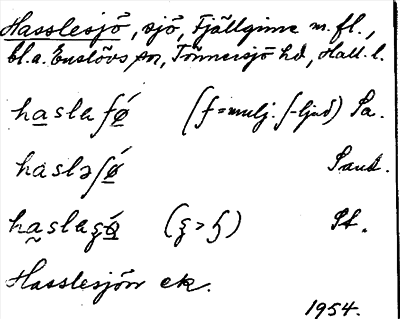 Hasslesjö, sjö, Fjällginne m. fl.,
bl.a. Enslövs sn, Tönnersjö hd, Hall. l.
haslaʃǿ (ʃ=mulj. ʃ-ljud) Sa.
haslaʃǿ Sand.
haslagǿ St.
Hasslesjön ek.
1954.